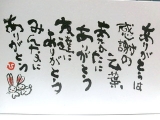 ありがとうは
感謝の言葉
あなたに
ありがとう
友達へ
ありがとう
みんなに
ありがとう